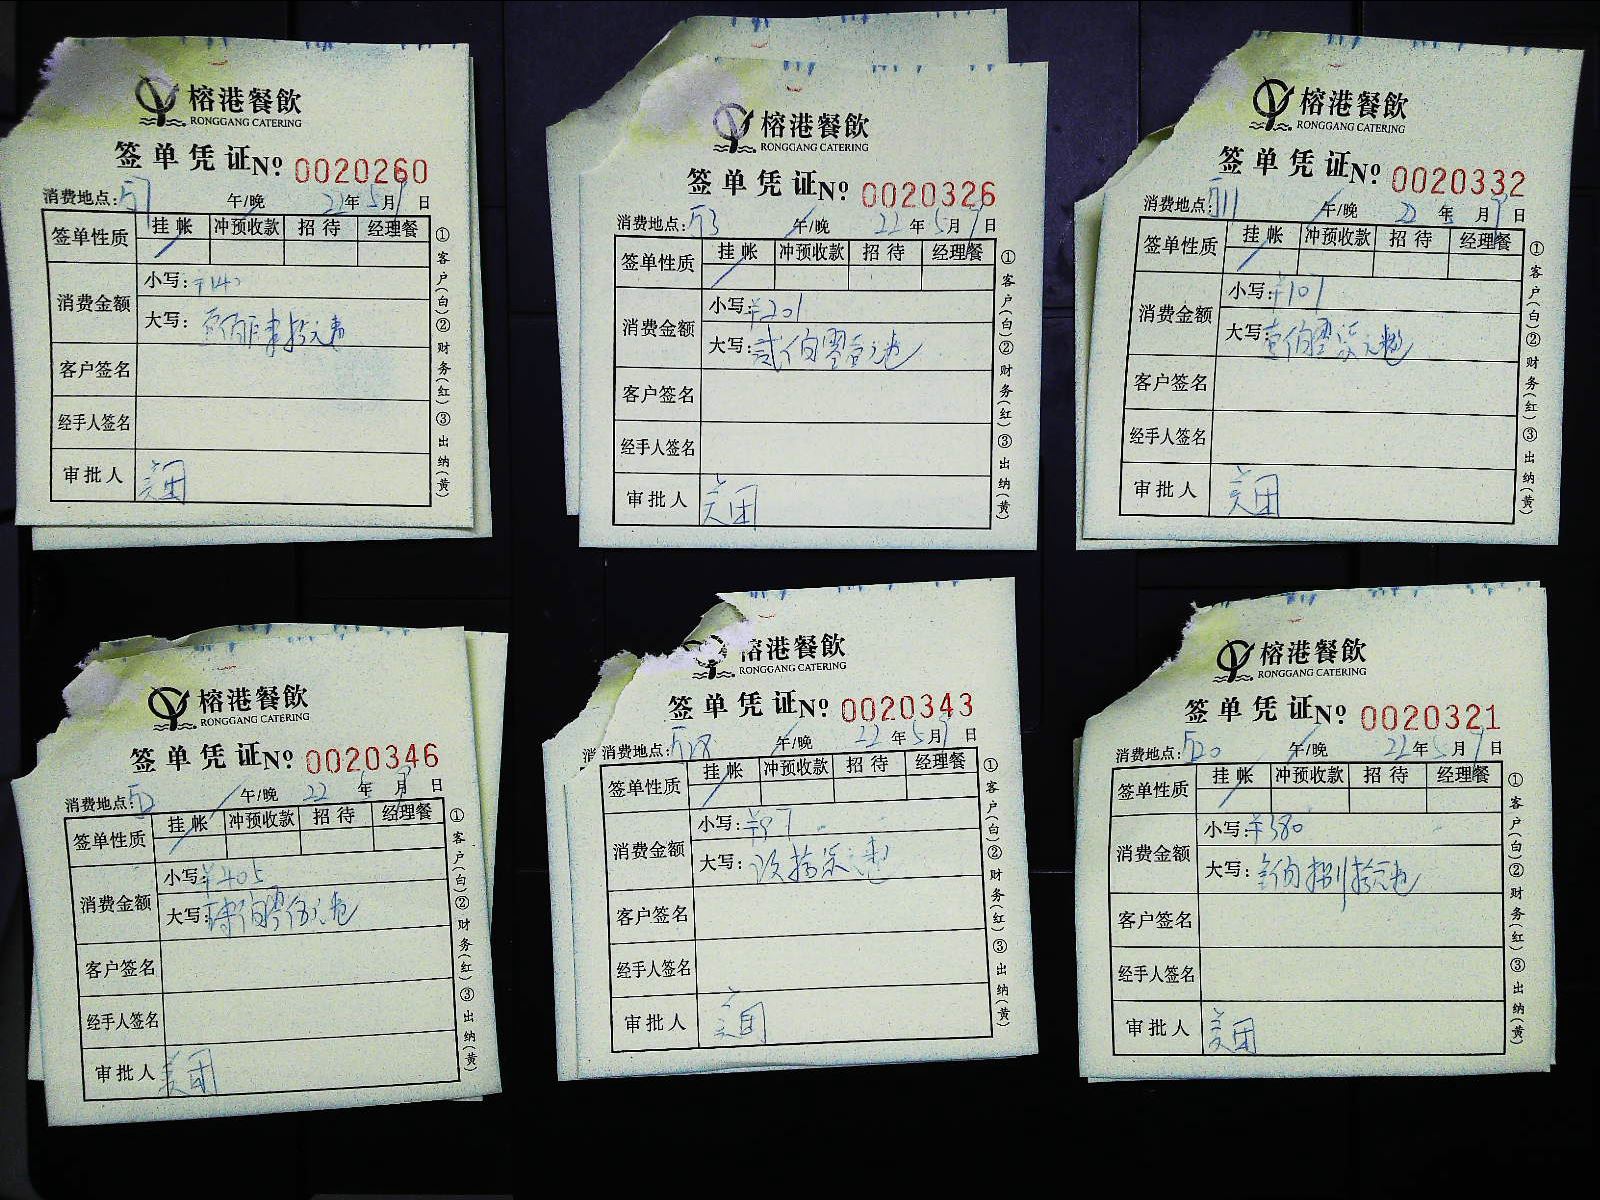 榕港餐飲
RONGGANG CATERING
签单凭证№ 0020260
消费地点: 午/晚 22年5月9日
签单性质 挂帐 冲预收款 招待 经理餐
消费金额 小写:¥140
大写:壹佰肆拾元整
客户签名
经手人签名
审批人 美团
①客户(白)②财务(红)③出纳(黄)
榕港餐飲
RONGGANG CATERING
签单凭证№ 0020326
消费地点: 午/晚 22年5月9日
签单性质 挂帐 冲预收款 招待 经理餐
消费金额 小写:¥201
大写:贰佰零壹元整
客户签名
经手人签名
审批人 美团
①客户(白)②财务(红)③出纳(黄)
榕港餐飲
RONGGANG CATERING
签单凭证№ 0020332
消费地点: 午/晚 22年 月9日
签单性质 挂帐 冲预收款 招待 经理餐
消费金额 小写:¥107
大写:壹佰零柒元整
客户签名
经手人签名
审批人 美团
①客户(白)②财务(红)③出纳(黄)
榕港餐飲
RONGGANG CATERING
签单凭证№ 0020346
消费地点: 午/晚 22年5月9日
签单性质 挂帐 冲预收款 招待 经理餐
消费金额 小写:¥405
大写:肆佰零伍元整
客户签名
经手人签名
审批人 美团
①客户(白)②财务(红)③出纳(黄)
榕港餐飲
RONGGANG CATERING
签单凭证№ 0020343
消费地点: 午/晚 22年5月9日
签单性质 挂帐 冲预收款 招待 经理餐
消费金额 小写:¥97
大写:玖拾柒元整
客户签名
经手人签名
审批人 美团
①客户(白)②财务(红)③出纳(黄)
榕港餐飲
RONGGANG CATERING
签单凭证№ 0020321
消费地点: 午/晚 22年5月9日
签单性质 挂帐 冲预收款 招待 经理餐
消费金额 小写:¥380
大写:叁佰捌拾元整
客户签名
经手人签名
审批人 美团
①客户(白)②财务(红)③出纳(黄)